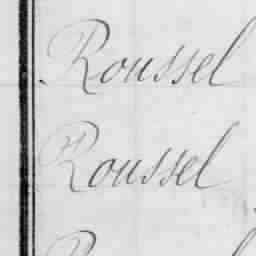 Roussel
Roussel